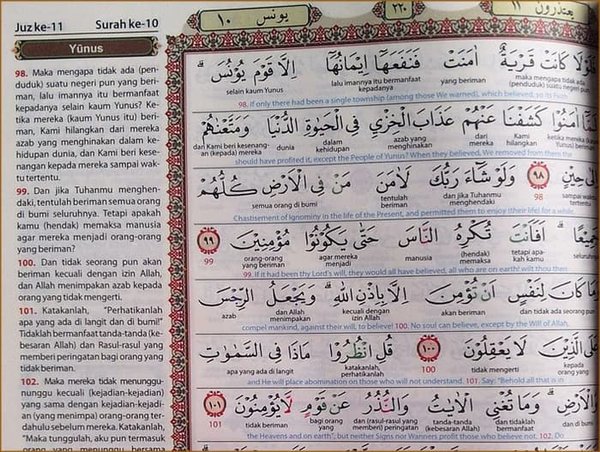 Juz ke-11 Surah ke-10
Yūnus
98. Maka mengapa tidak ada (pen-
duduk) suatu negeri pun yang beri-
man, lalu imannya itu bermanfaat
kepadanya selain kaum Yunus? Ke-
tika mereka (kaum Yunus itu) beri-
man, Kami hilangkan dari mereka
azab yang menghinakan dalam ke-
hidupan dunia, dan Kami beri kese-
nangan kepada mereka sampai wak-
tu tertentu.
99. Dan jika Tuhanmu menghen-
daki, tentulah beriman semua orang
di bumi seluruhnya. Tetapi apakah
kamu (hendak) memaksa manusia
agar mereka menjadi orang-orang
yang beriman?
100. Dan tidak seorang pun akan
beriman kecuali dengan izin Allah,
dan Allah menimpakan azab kepada
orang yang tidak mengerti.
101. Katakanlah, "Perhatikanlah
apa yang ada di langit dan di bumi!"
Tidaklah bermanfaat tanda-tanda (ke-
besaran Allah) dan Rasul-rasul yang
memberi peringatan bagi orang yang
tidak beriman.
102. Maka mereka tidak menunggu-
nunggu kecuali (kejadian-kejadian)
yang sama dengan kejadian-kejadi-
an (yang menimpa) orang-orang ter-
dahulu sebelum mereka. Katakanlah,
"Maka tunggulah, aku pun termasuk
يعتذرون ١١ ٢٢٠ يونس ١٠
فَلَوْلَا كَانَتْ قَرْيَةٌ اٰمَنَتْ فَنَفَعَهَآ اِيْمَانُهَآ اِلَّا قَوْمَ يُوْنُسَۗ
selain kaum Yunus lalu imannya itu bermanfaat kepadanya yang beriman maka mengapa tidak ada (penduduk) suatu negeri pun
98. If only there had been a single township (among those We warned), which believed, so its
لَمَّآ اٰمَنُوْا كَشَفْنَا عَنْهُمْ عَذَابَ الْخِزْيِ فِى الْحَيٰوةِ الدُّنْيَا وَمَتَّعْنٰهُمْ
dan Kami beri kesenangan (kepada) mereka dunia dalam kehidupan azab yang menghinakan dari mereka Kami hilangkan ketika mereka beriman
should have profited it, except the People of Yunus? When they believed, We removed from them the
اِلٰى حِيْنٍ ٩٨ وَلَوْ شَاۤءَ رَبُّكَ لَاٰمَنَ مَنْ فِى الْاَرْضِ كُلُّهُمْ
semua orang di bumi tentulah beriman dan jika Tuhanmu menghendaki 98 sampai waktu tertentu
Chastisement of ignominy in the life of the Present, and permitted them to enjoy (their life) for a while.
جَمِيْعًاۗ اَفَاَنْتَ تُكْرِهُ النَّاسَ حَتّٰى يَكُوْنُوْا مُؤْمِنِيْنَ ٩٩
99 orang-orang yang beriman agar mereka menjadi manusia (hendak) memaksa tetapi apakah kamu seluruhnya
99. If it had been thy Lord's will, they would all have believed, all who are on earth! wilt thou then
وَمَا كَانَ لِنَفْسٍ اَنْ تُؤْمِنَ اِلَّا بِاِذْنِ اللّٰهِۗ وَيَجْعَلُ الرِّجْسَ
azab dan Allah menimpakan kecuali dengan izin Allah akan beriman dan tidak ada seorang pun
compel mankind, against their will, to believe! 100. No soul can believe, except by the Will of Allah,
عَلَى الَّذِيْنَ لَا يَعْقِلُوْنَ ١٠٠ قُلِ انْظُرُوْا مَاذَا فِى السَّمٰوٰتِ
apa yang ada di langit katakanlah, perhatikanlah 100 tidak mengerti kepada orang yang
and He will place abomination on those who will not understand. 101. Say: "Behold all that is in
وَالْاَرْضِۗ وَمَا تُغْنِى الْاٰيٰتُ وَالنُّذُرُ عَنْ قَوْمٍ لَّا يُؤْمِنُوْنَ ١٠١
101 tidak beriman bagi orang yang dan (rasul-rasul yang memberi) peringatan tanda-tanda (kebesaran Allah) dan tidaklah bermanfaat dan bumi
the Heavens and on earth", but neither Signs nor Warners profit those who believe not. 102. Do